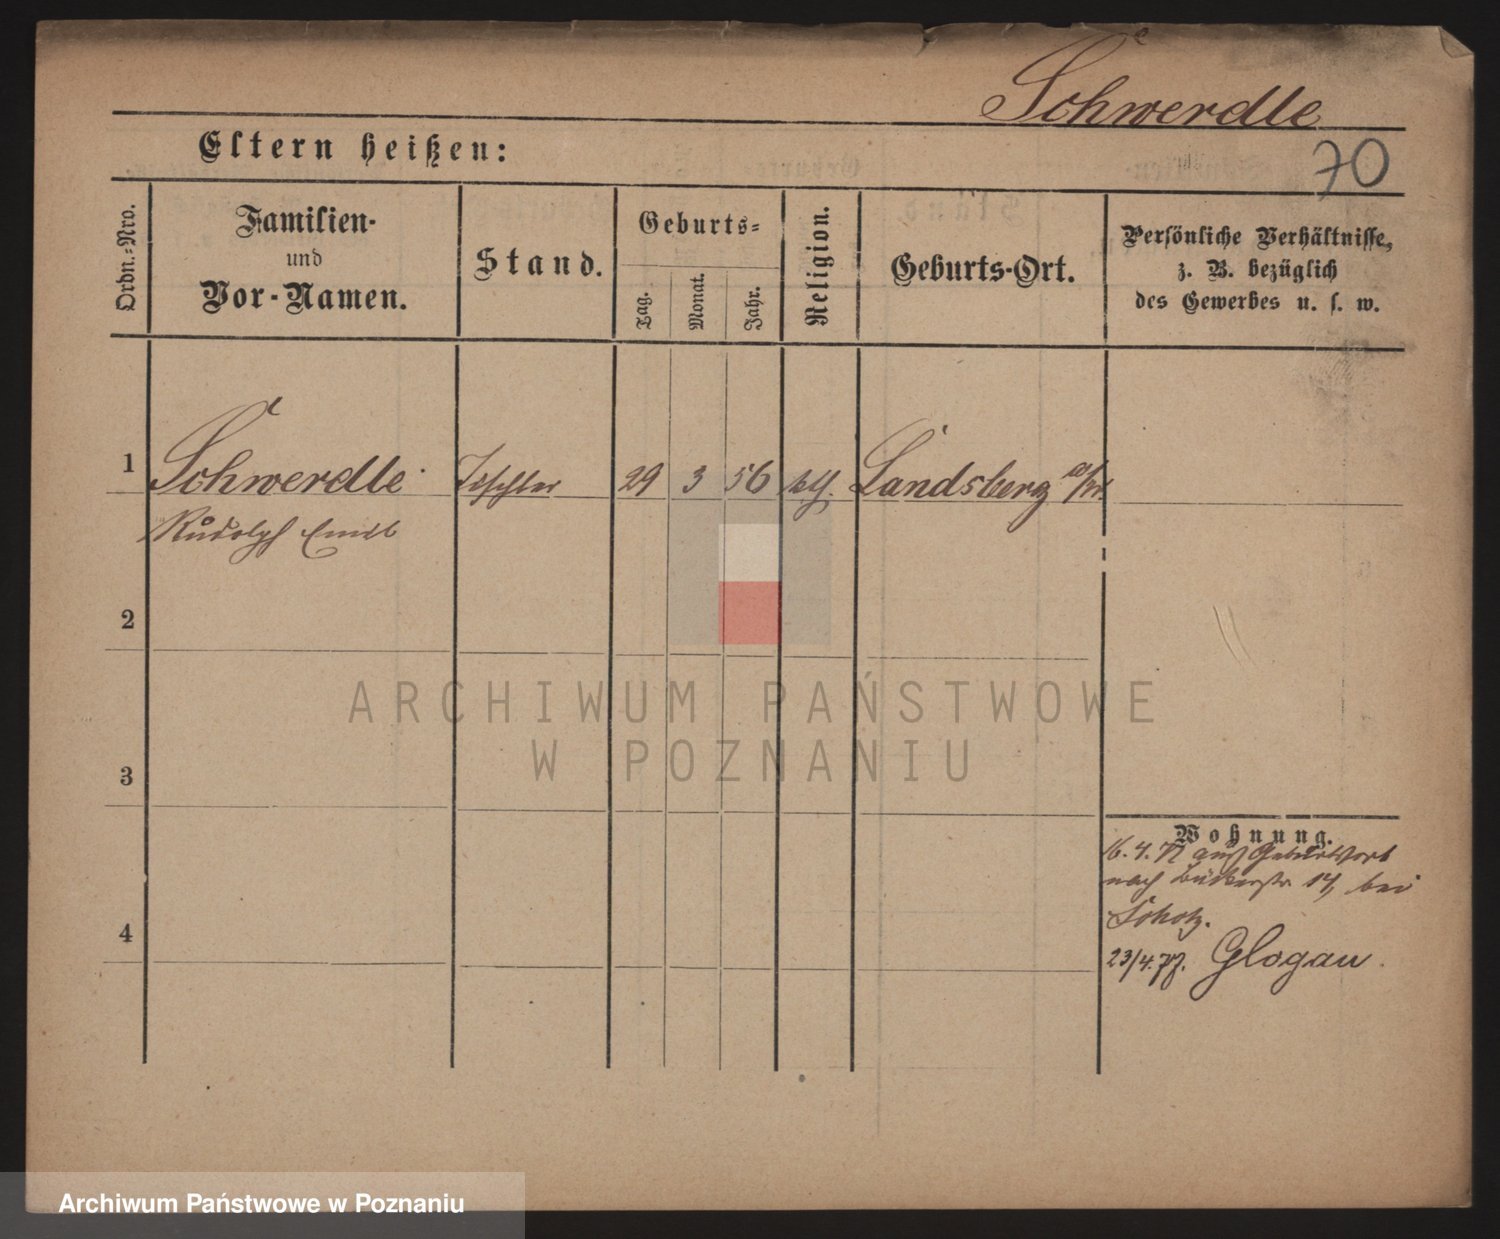 Schwerdtle
Eltern heißen:
70
Ordn.-Nro.
Familien-
und
Vor-Namen.
Stand.
Geburts-
Tag.
Monat.
Jahr.
Religion.
Geburts-Ort.
Persönliche Verhältnisse,
z. B. bezüglich
des Gewerbes u. s. w.
1 Schwerdtle Tischler 29 3 56 Landsberg a/W
Rudolph Emil
2
ARCHIWUM PAŃSTWOWE
W POZNANIU
3
Wohnung.
16.4.77 aus Geburtsort
nach 14, bei
4
23/4.77. Glogau.
Archiwum Państwowe w Poznaniu